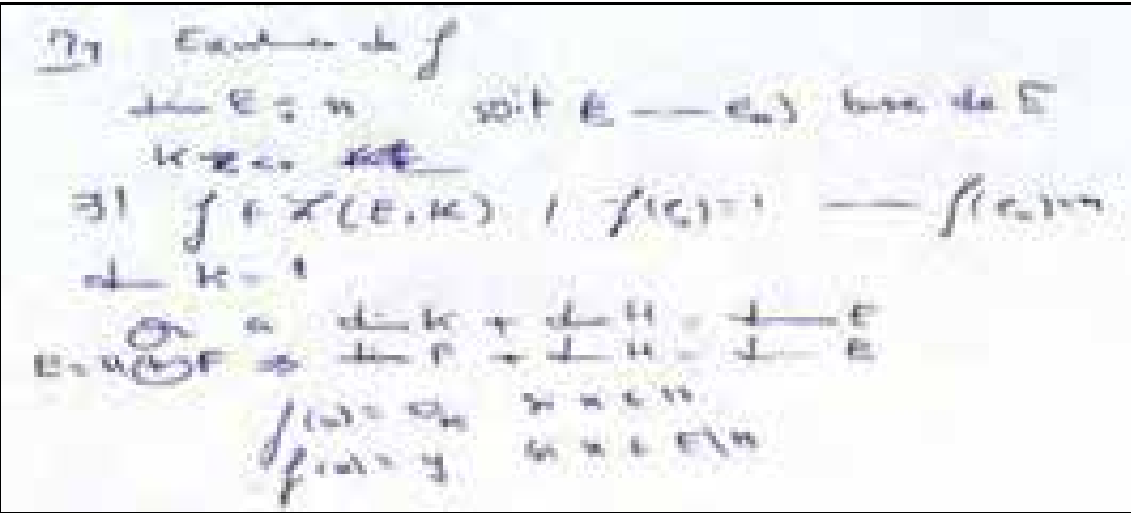 Existence de f
dim E = n soit e — en) base de E
∃! f ∈ L(E, K) / f(e1) = 1 — f(en) = n
dim K = 1
On a dim K + dim H = dim E
E = H ⊕ F ⇒ dim F + dim H = dim E
f(x) = 0K si x ∈ H
f(x) = y si x ∈ E\H